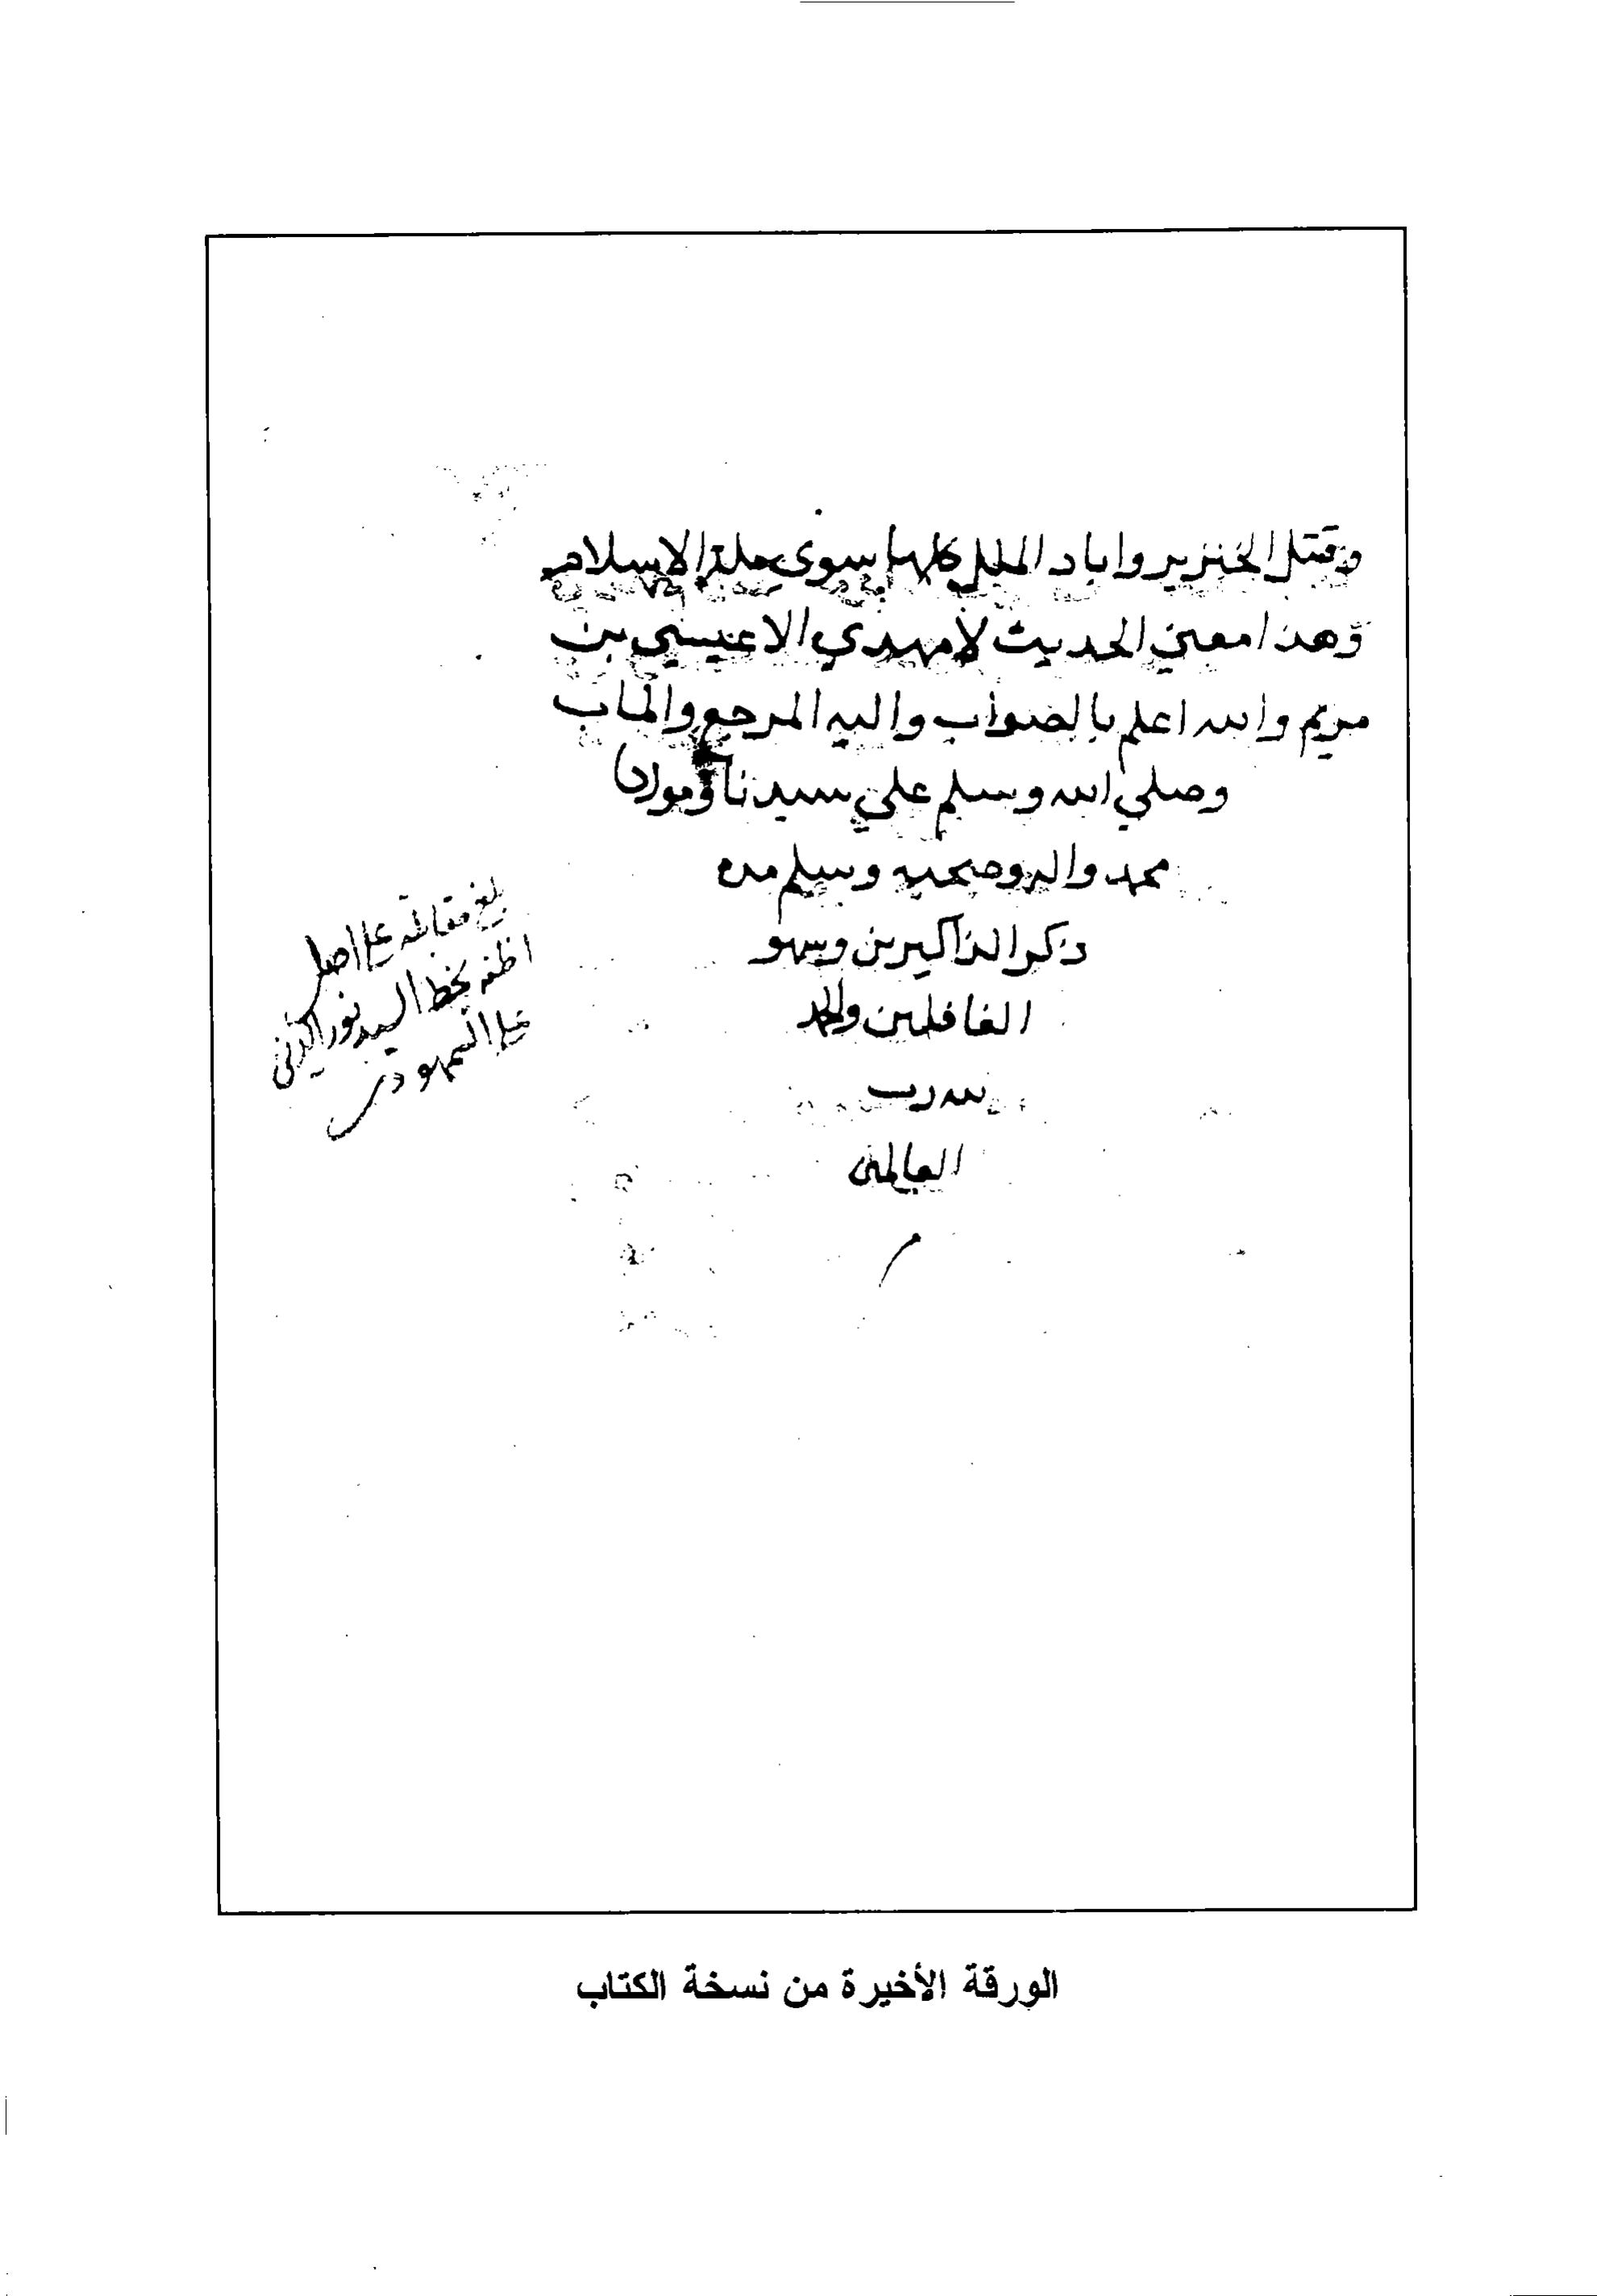 وقتل الخنزير واباد الملل كلها سوى ملة الاسلام
وهذا معنى الحديث لامهدي الاعيسى بن
مريم والله اعلم بالصواب واليه المرجع والماب
وصلي الله وسلم علي سيدنا ومولانا
محمد واله وصحبه وسلم
ذكر الذاكرين وسهو
الغافلين والحمد
لله رب
العالمين
بلغ مقابلة على اصل
اظنه بخط السيد نور الدين
علي السمهودي
الورقة الأخيرة من نسخة الكتاب